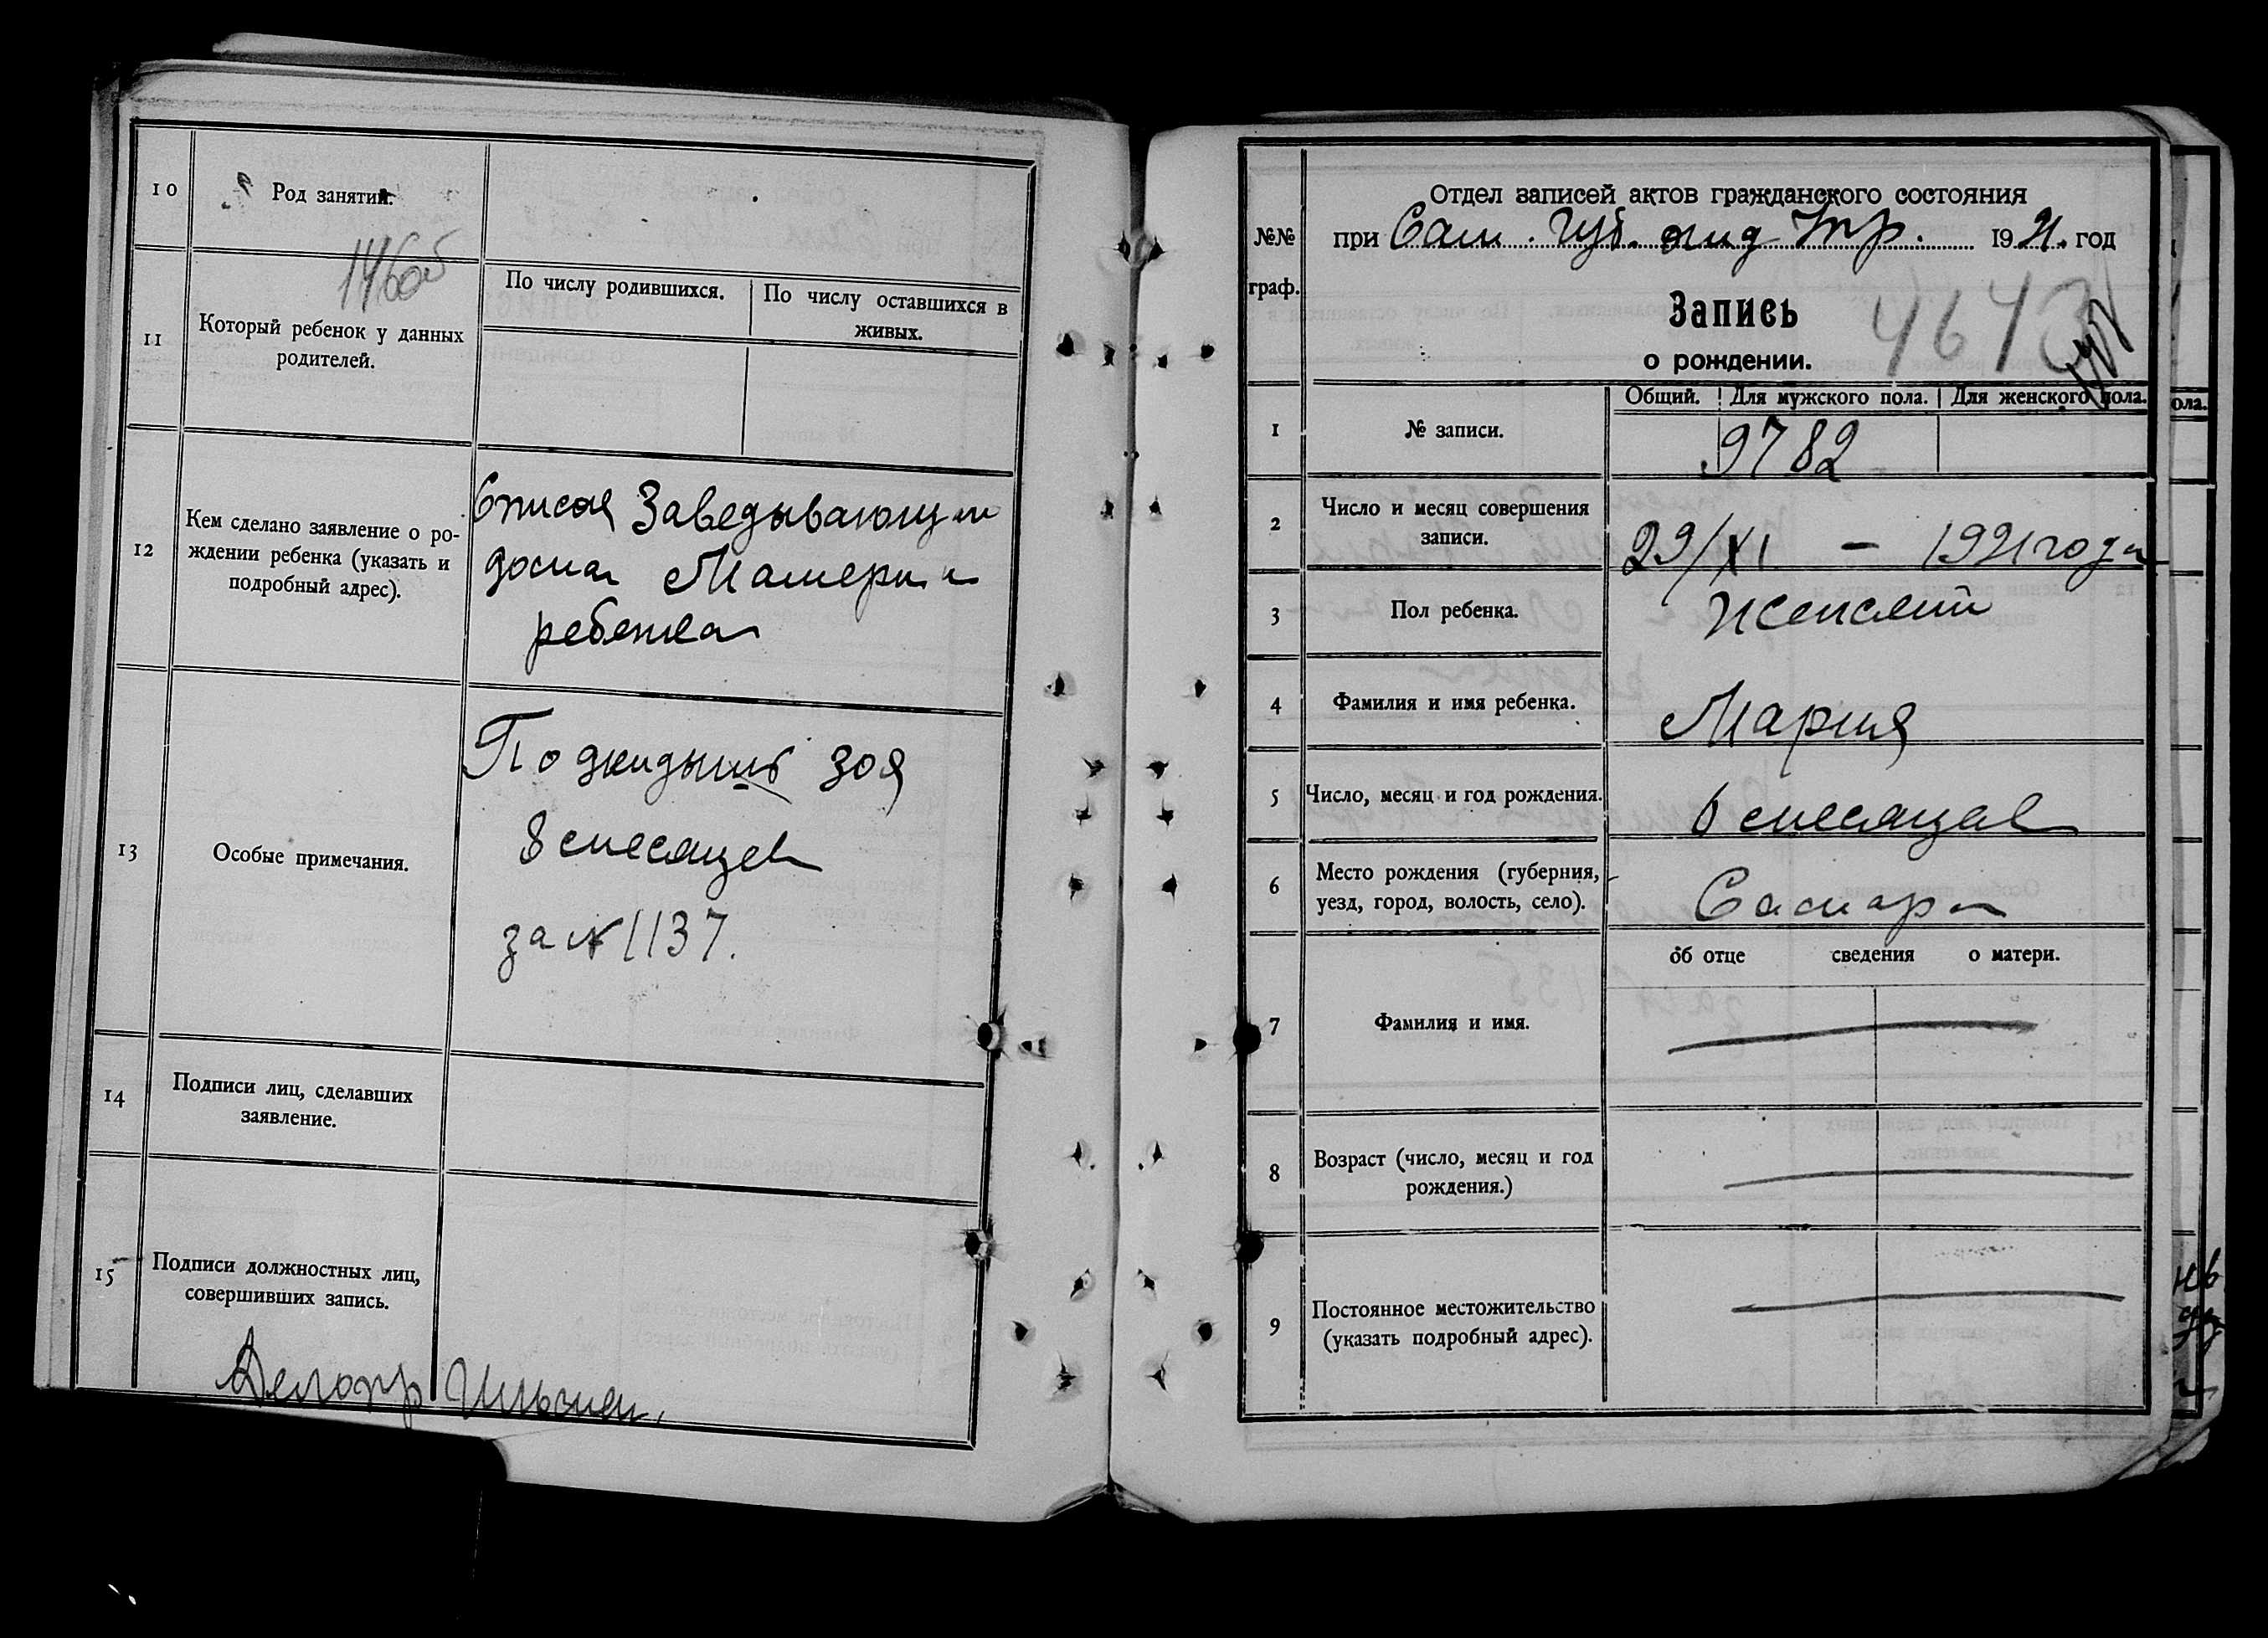 10
Род занятий.
14605
11
Который ребенок у данных
родителей.
По числу родившихся.
По числу оставшихся в
живых.
12
Кем сделано заявление о ро-
ждении ребенка (указать и
подробный адрес).
Список Заведывающим
дома Матери и
ребенка
13
Особые примечания.
Подкидыш Зоя
8 месяцев
за № 1137.
14
Подписи лиц, сделавших
заявление.
15
Подписи должностных лиц,
совершивших запись.
Делопр
№№
граф.
Отдел записей актов гражданского состояния
при Сам. Губ. отд Упр. 1921. год
Запись
о рождении.
4643
1
№ записи.
Общий.
Для мужского пола.
Для женского пола.
9782
2
Число и месяц совершения
записи.
29/XI — 1921 года
3
Пол ребенка.
Женский
4
Фамилия и имя ребенка.
Мария
5
Число, месяц и год рождения.
6 месяцев
6
Место рождения (губерния,
уезд, город, волость, село).
Самара
об отце сведения о матери.
7
Фамилия и имя.
8
Возраст (число, месяц и год
рождения.)
9
Постоянное местожительство
(указать подробный адрес).
ола.